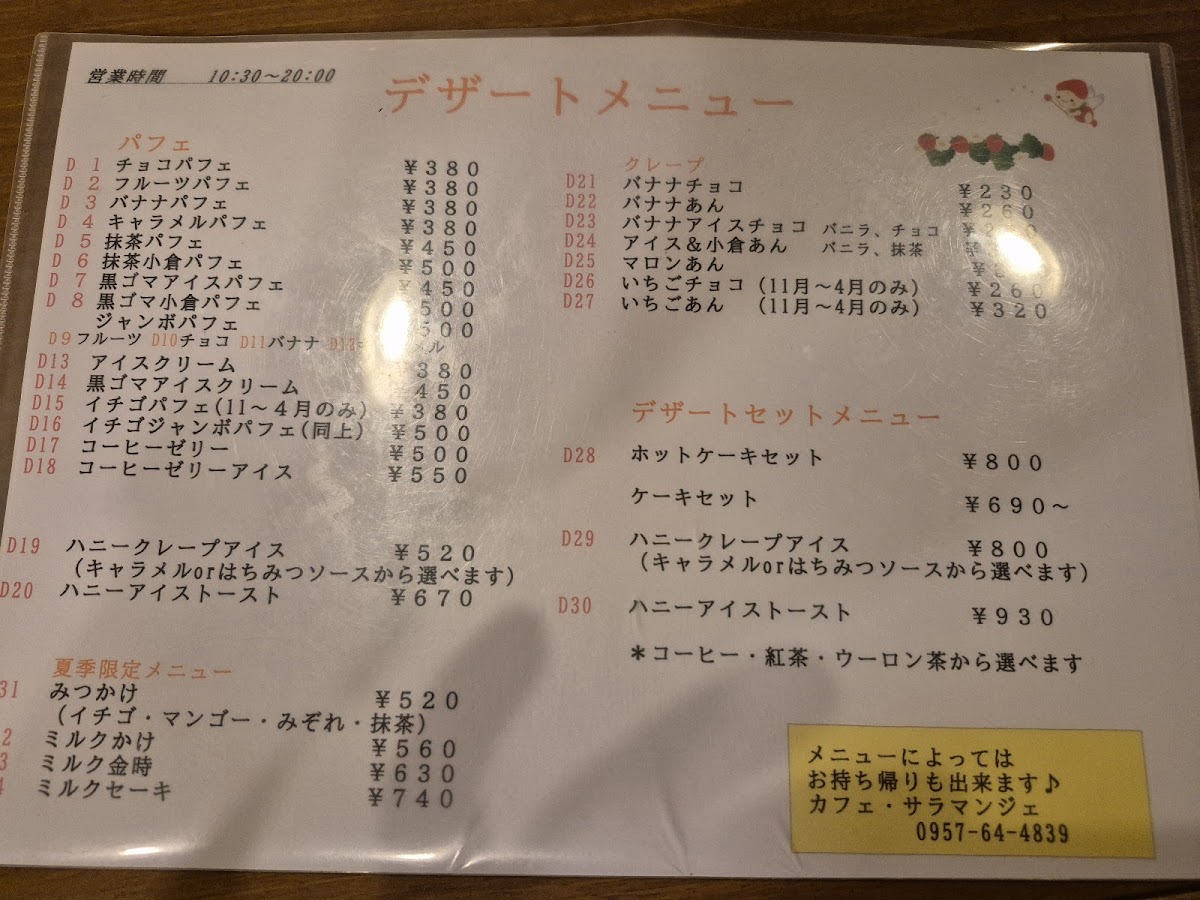 営業時間　10:30～20:00
デザートメニュー
パフェ
D 1 チョコパフェ ￥380
D 2 フルーツパフェ ￥380
D 3 バナナパフェ ￥380
D 4 キャラメルパフェ ￥380
D 5 抹茶パフェ ￥450
D 6 抹茶小倉パフェ ￥500
D 7 黒ゴマアイスパフェ ￥450
D 8 黒ゴマ小倉パフェ 500
ジャンボパフェ 500
D9フルーツ D10チョコ D11バナナ
D13 アイスクリーム 380
D14 黒ゴマアイスクリーム 450
D15 イチゴパフェ(11～４月のみ) ￥380
D16 イチゴジャンボパフェ(同上) ￥500
D17 コーヒーゼリー ￥500
D18 コーヒーゼリーアイス ￥550
D19 ハニークレープアイス ￥520
（キャラメルorはちみつソースから選べます）
D20 ハニーアイストースト ￥670
夏季限定メニュー
31 みつかけ ￥520
（イチゴ・マンゴー・みぞれ・抹茶）
2 ミルクかけ ￥560
3 ミルク金時 ￥630
4 ミルクセーキ ￥740
クレープ
D21 バナナチョコ ￥230
D22 バナナあん ￥260
D23 バナナアイスチョコ バニラ、チョコ
D24 アイス＆小倉あん バニラ、抹茶
D25 マロンあん
D26 いちごチョコ (11月～4月のみ) ￥260
D27 いちごあん (11月～4月のみ) ￥320
デザートセットメニュー
D28 ホットケーキセット ￥800
ケーキセット ￥690～
D29 ハニークレープアイス ￥800
（キャラメルorはちみつソースから選べます）
D30 ハニーアイストースト ￥930
＊コーヒー・紅茶・ウーロン茶から選べます
メニューによっては
お持ち帰りも出来ます♪
カフェ・サラマンジェ
0957-64-4839